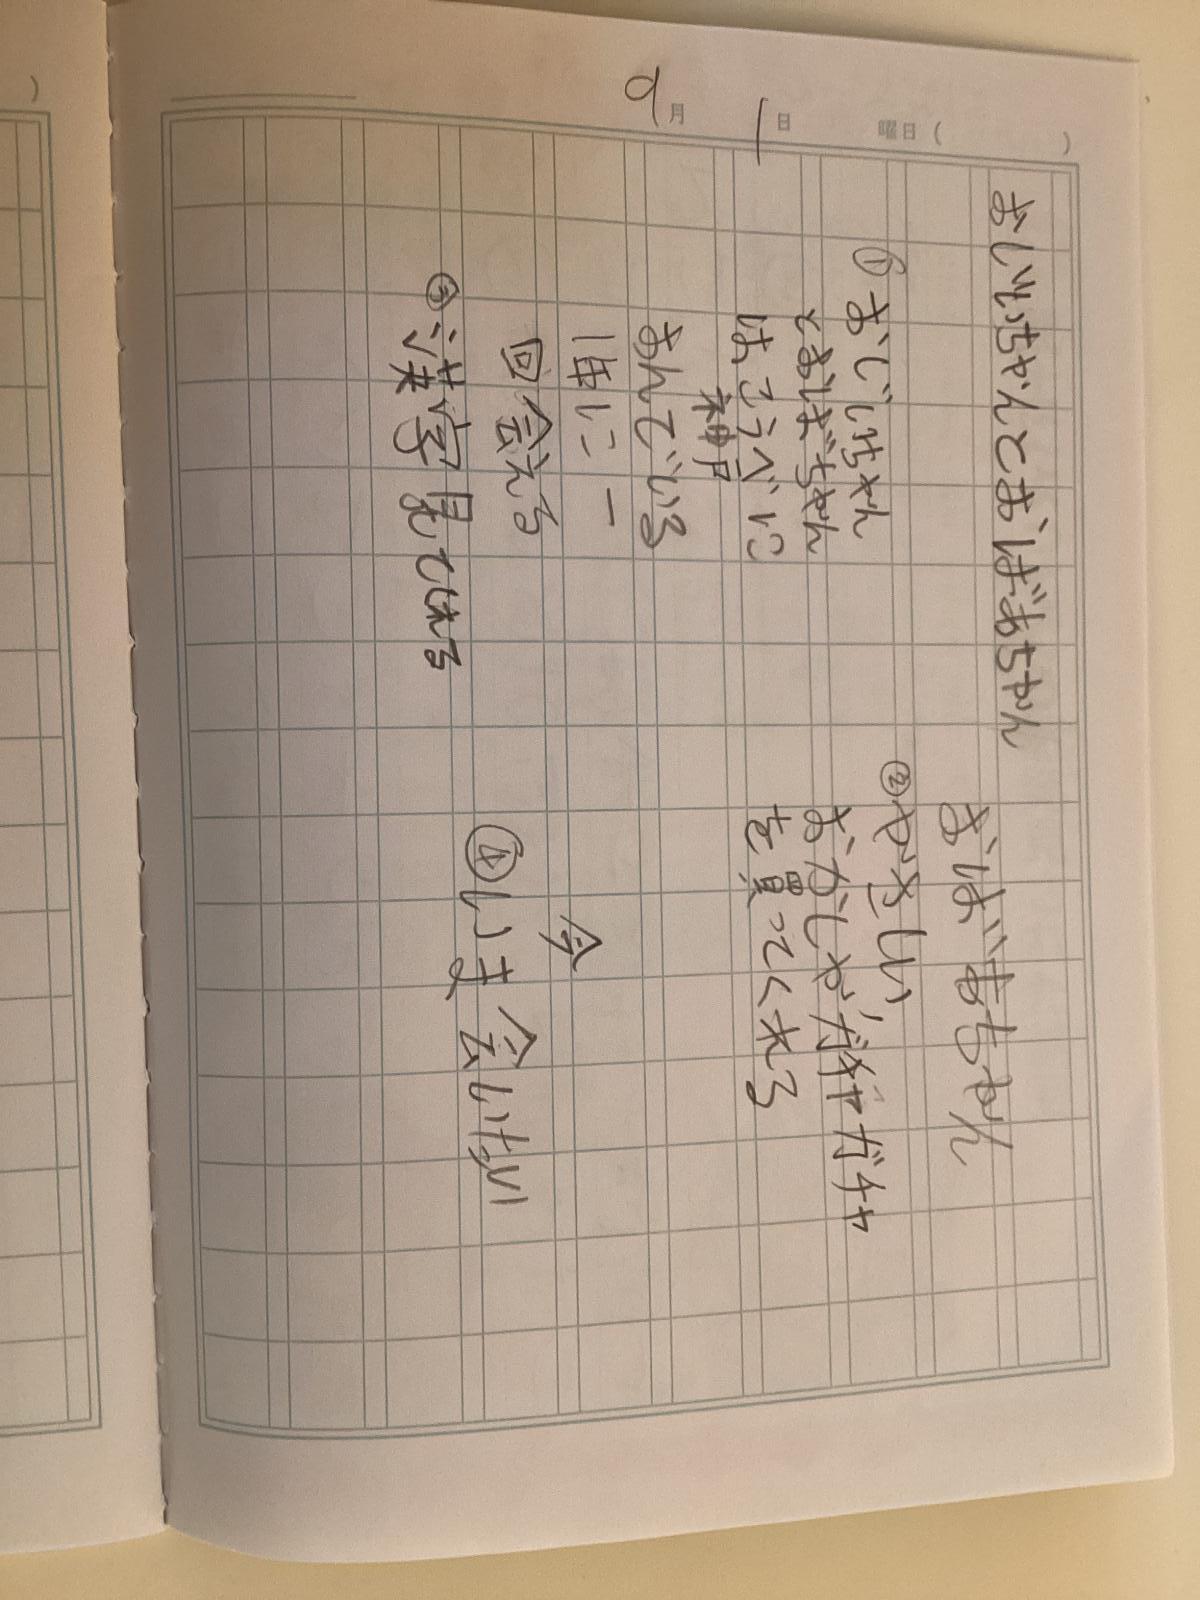 9月 1日 曜日( )
おじいちゃんとおばあちゃん
① おじいちゃん
とおばちゃん
はこうべに
神戸
あんでいる
に一
回会える
③ 漢字見てくれる
おばあちゃん
② やさしい
おかしや、ガチャガチャ
を買ってくれる
今
④ いま会いない